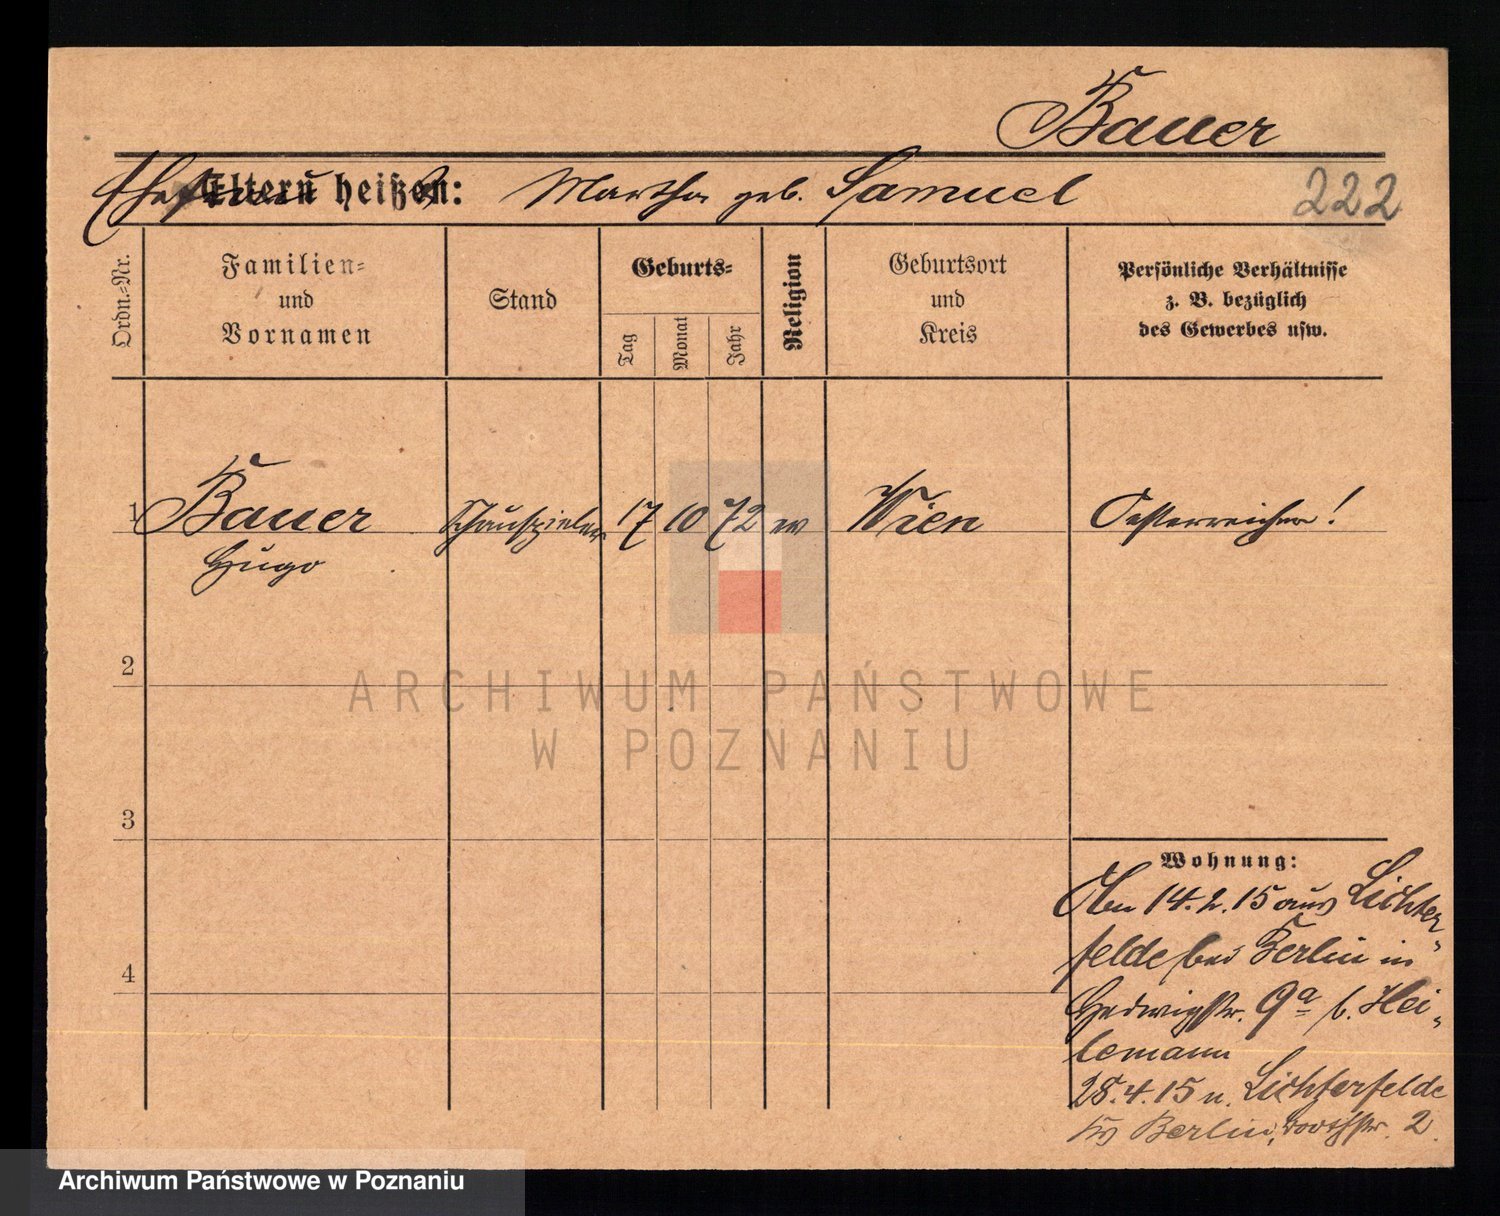 Bauer
Ehefrau Eltern heißen: Martha geb. Samuel
222
Ordn.-Nr.
Familien-
und
Vornamen
Stand
Geburts-
Tag
Monat
Jahr
Religion
Geburtsort
und
Kreis
Persönliche Verhältnisse
z. B. bezüglich
des Gewerbes usw.
1 Bauer Schauspieler 17 10 72 ev Wien Oesterreicher!
Hugo
2
ARCHIWUM PAŃSTWOWE
W POZNANIU
3
Wohnung:
14.2.15 aus Lichter-
felde bei Berlin in
4
Hedwigstr. 9a b. Hei-
lemann
28.4.15 n. Lichterfelde
Berlin, 2.
Archiwum Państwowe w Poznaniu